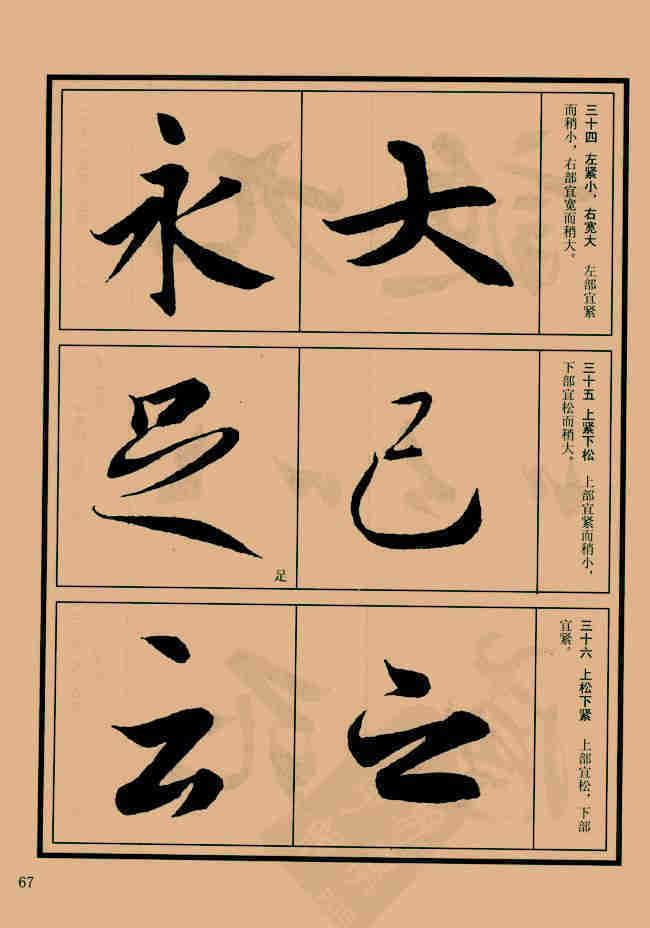 三十四 左紧小，右宽大 左部宜紧
而稍小，右部宜宽而稍大。
大
永
三十五 上紧下松 上部宜紧而稍小，
下部宜松而稍大。
己
足
足
三十六 上松下紧 上部宜松，下部
宜紧。
之
云
67